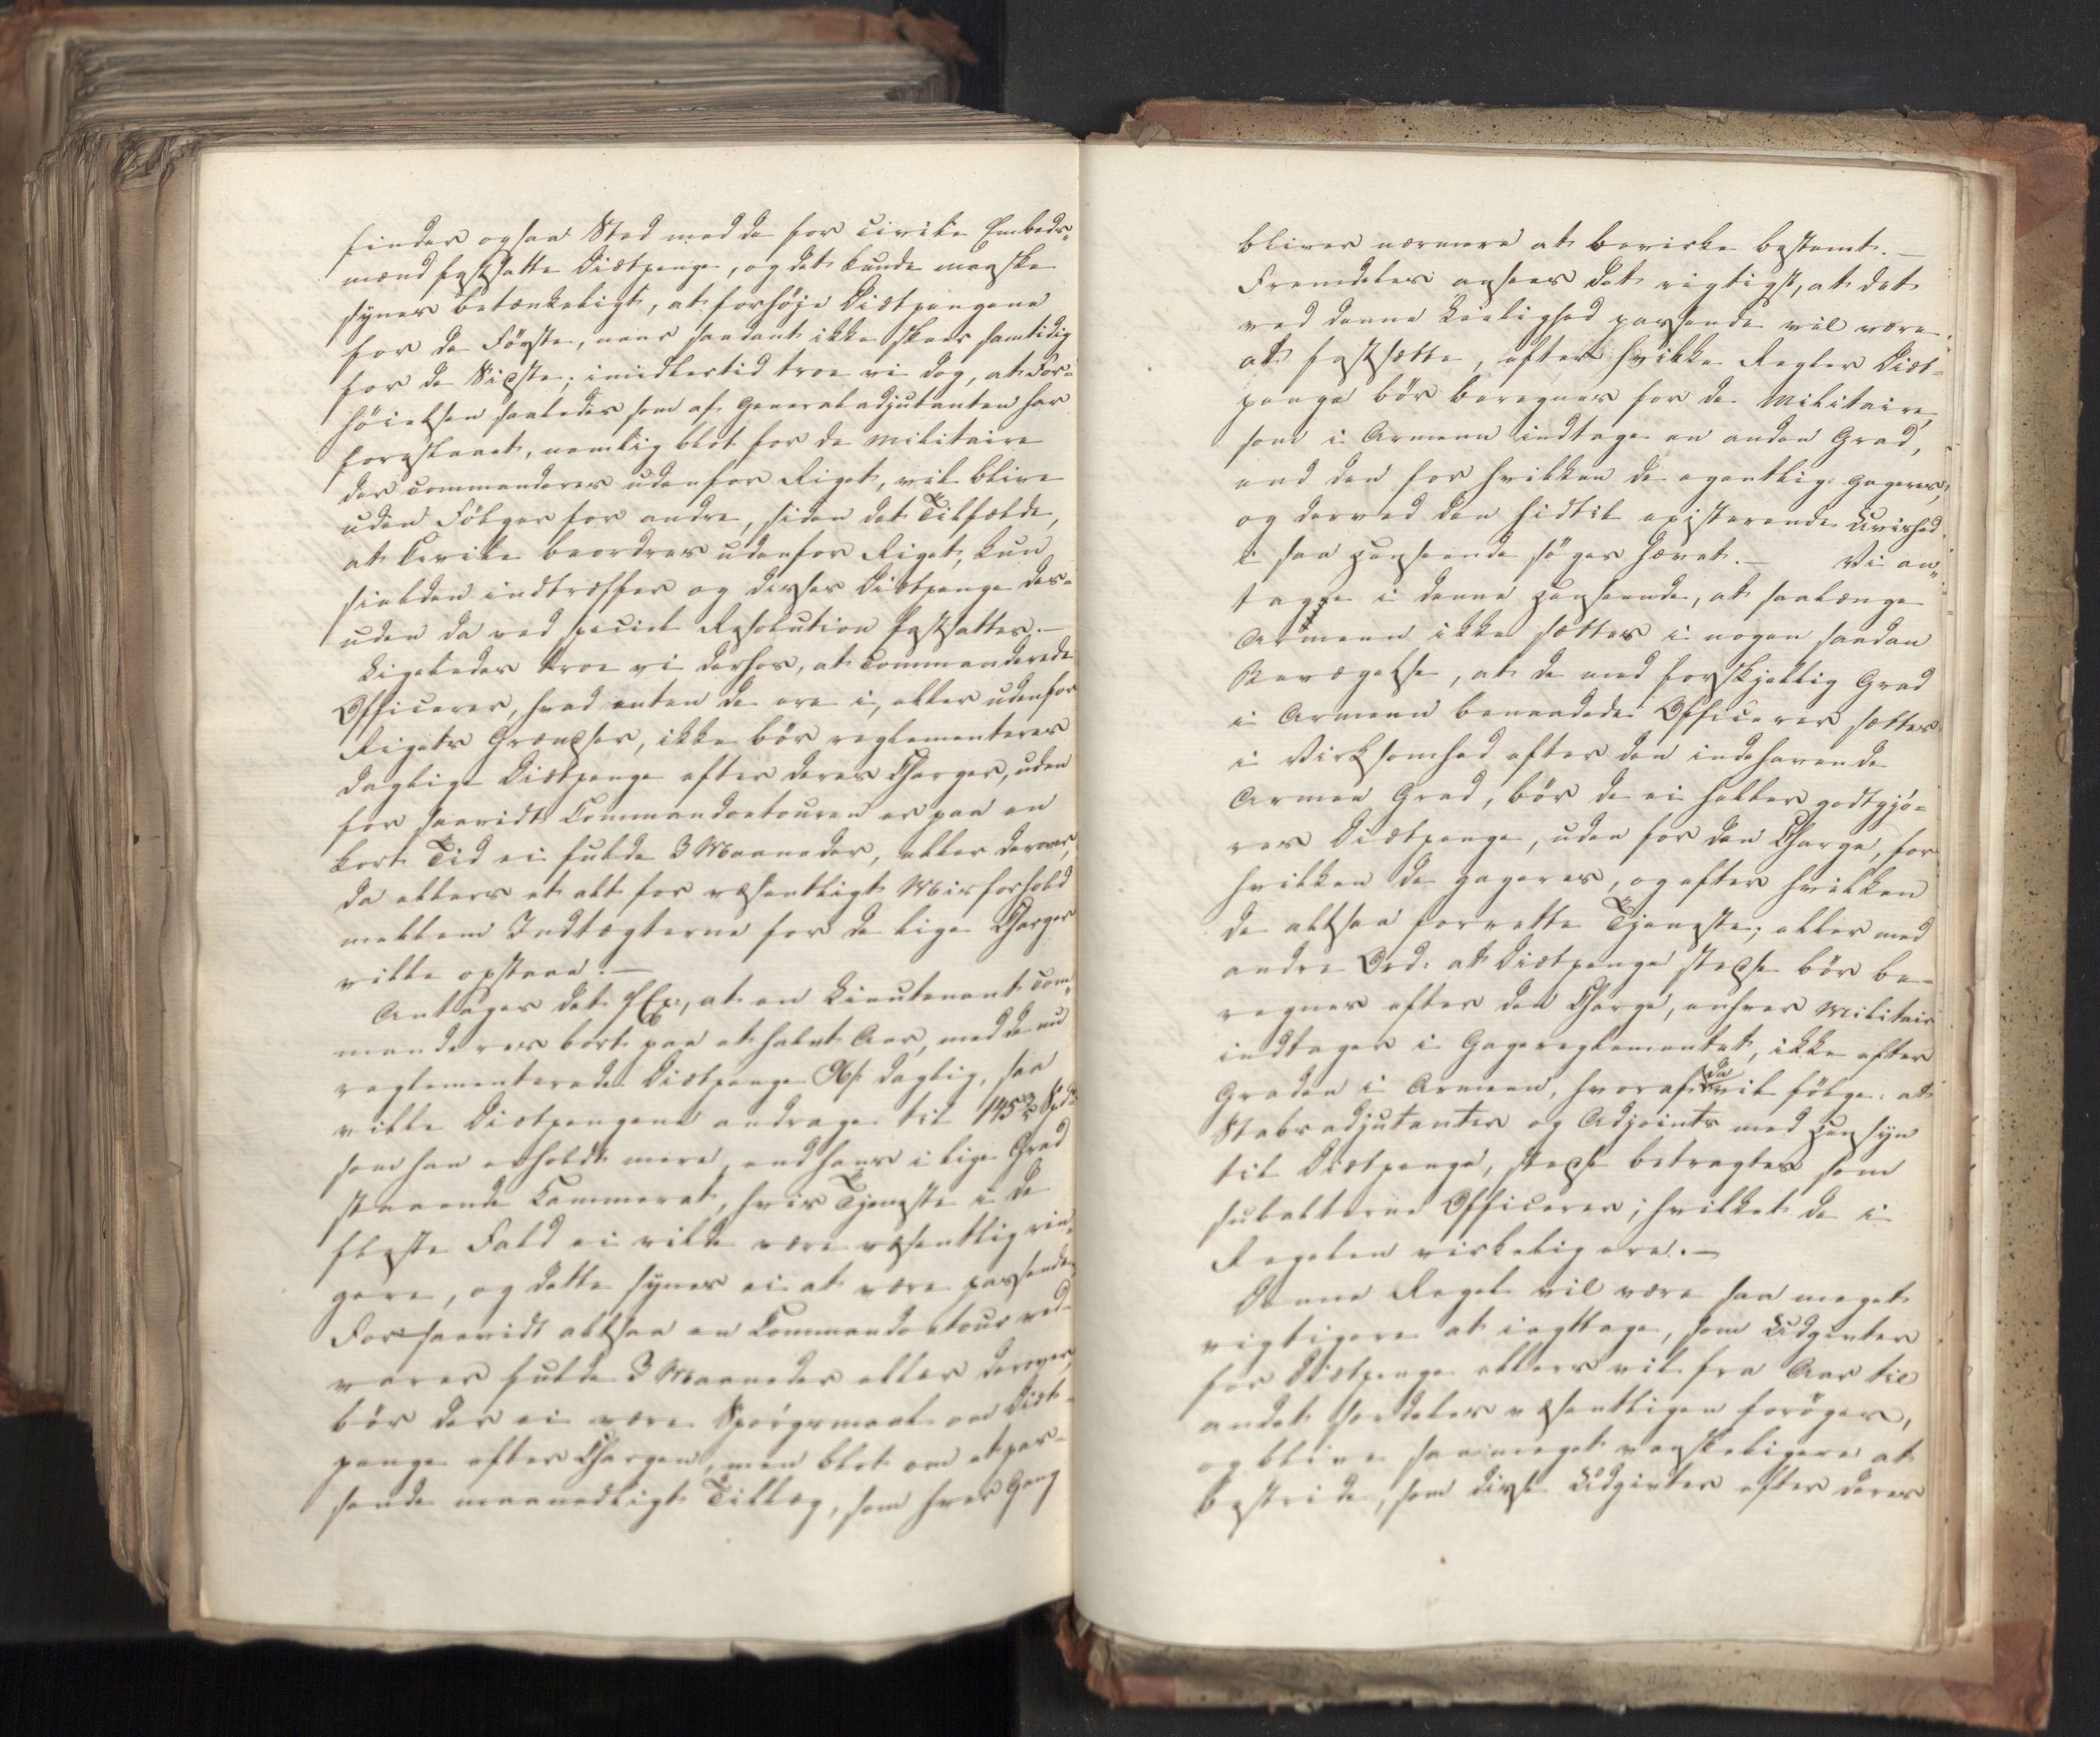 finder ogsaa Sted med de for civile Embeds„
mænd fastsatte Diætpenge, og det kunde maaske
synes betænkeligt, at forhøje Diætpengene
for de Første, naar saadant ikke skeer samtidig
for de Sidste; imidlertid troe vi dog, at For„
høielsen saaledes som af Generaladjutanten har
foreslaaet, nemlig blot for de Militaire
der commanderes udenfor Riget, vil blive
uden Følger for andre, siden det Tilfælde,
at Civile beordres udenfor Riget, kun
sielden indtræffer og disses Diætpenge des„
uden da ved speciel Resolution fastsættes.—
Ligeledes troe vi derhos, at Commanderede
Officerer, hvad enten de ere i, eller udenfor
Rigets Grændser, ikke bør reglementeres
daglige Diætpenge efter deres Charger, uden
for saavidt Commandoetouren er paa en
kort Tid ei fulde 3 Maaneder, eller derover,
da ellers et alt for væsentligt Misforhold
mellem Indtægterne for de lige Charger
ville opstaae.—
Antages det f Ex:, at en Lieutenant com„
manderes bort paa et halvt Aar, med de nu
reglementerede Diætpenge daglig, saa
ville Diætpengene andrage til 145 Spd
som han erholdt mere, end hans i lige Grad
staaende Kammerat, hvis Tjeneste i de
fleste Fald ei vilde være væsentlig rin„
gere, og dette synes ei at være passende
Forsaavidt altsaa en Commandoetour ved„
varer fulde 3 Maaneder eller derover,
bør der ei være Spørgsmaal om Diæt„
penge efter Chargen, men blot om et pas„
sende maanedligt Tillæg, som hver Gang
bliver nærmere at bevirke bestemt.—
Fremdeles ansees det rigtigst, at det
ved denne Leilighed passende vil være
at fastsætte, efter hvilke Regler Diæt„
penge bør beregnes for de Militaire,
som i Armeen indtage en anden Grad,
end den for hvilken de egentlig gageres,
og derved den hidtil existerende Uvished
i saa Henseende søges hævet.— Vi an„
tage i denne Henseende, at saalænge
Armeen ikke sættes i nogen saadan
Bevægelse, at de med forskjellig Grad
i Armeen benaadede Officerer sættes
i Virksomhed efter den indehavende
Armee Grad, bør de ei heller godtgjø„
res Diætpenge, uden for den Charge, for
hvilken de gageres, og efter hvilken
de altsaa forrette Tjeneste; eller med
andre Ord: at Diætpenge stedse bør be„
regnes efter den Charge, enhver Militair
indtager i Gagereglementet, ikke efter
Graden i Armeen, hvoraf da vil følge: at
Stabsadjutanter og Adjoints med Hensyn
til Diætpenge, stedse betragtes som
subalterne Officerer; hvilket de i
Regelen virkelig ere.—
Denne Regel vil være saa meget
vigtigere at iagttage, som Udgivter
for Diætpenge ellers vil fra Aar til
andet særdeles væsentligen forøges,
og blive saameget vanskeligere at
bestride, som disse Udgivter efter deres